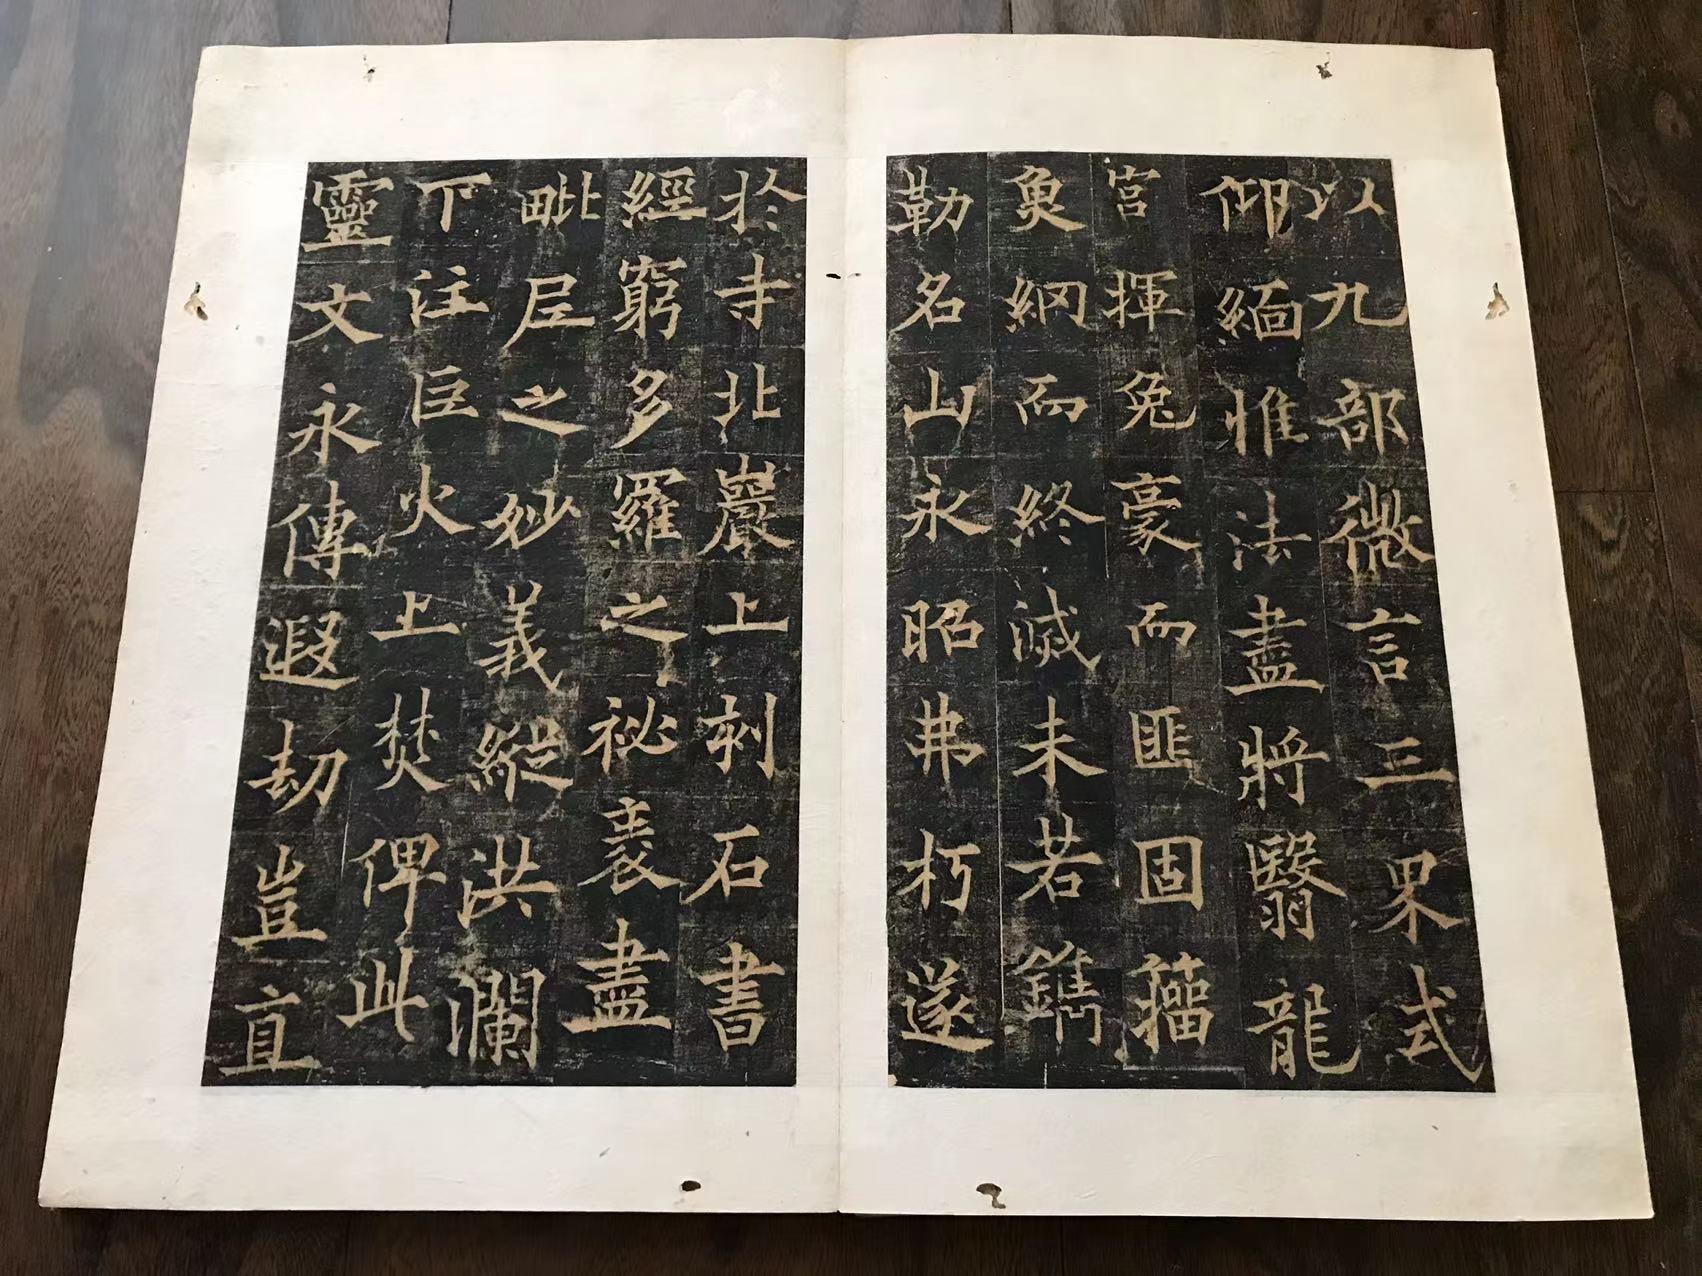 以九部微言三界式
仰緬惟法盡將翳龍
宮揮兔豪而匪固籀
魚網而終滅未若鐫
勒名山永昭弗朽遂
於寺北巖上刻石書
經窮多羅之祕袠盡
毗尼之妙義縱洪瀾
下注巨火上焚俾此
靈文永傳遐劫豈直